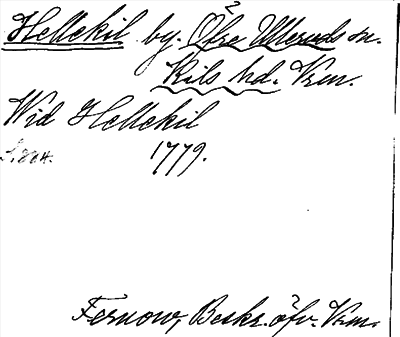 Hellekil by. Övre Ulleruds sn.
Kils hd. Vrm.
Wid Hellekil
1779.
Fernow, Beskr. öfv. Vrm.